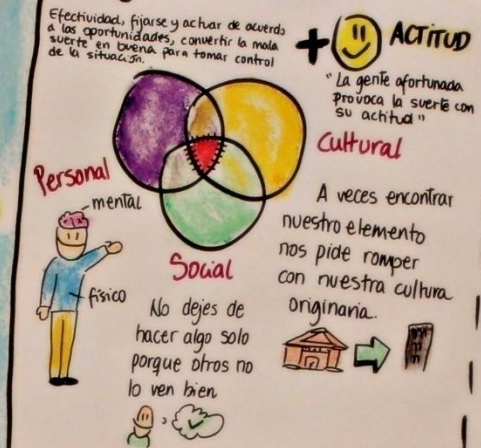 Efectividad, fijarse y actuar de acuerdo
a las oportunidades, convertir la mala
suerte en buena para tomar control
de la situación.
+ ACTITUD
"La gente afortunada
provoca la suerte con
su actitud"
Cultural
Personal
mental
físico
Social
A veces encontrar
nuestro elemento
nos pide romper
con nuestra cultura
originaria.
No dejes de
hacer algo solo
porque otros no
lo ven bien